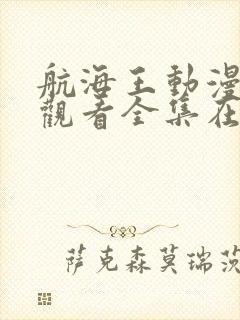 航海王動漫
觀看全集在
萨克森莫瑞茨